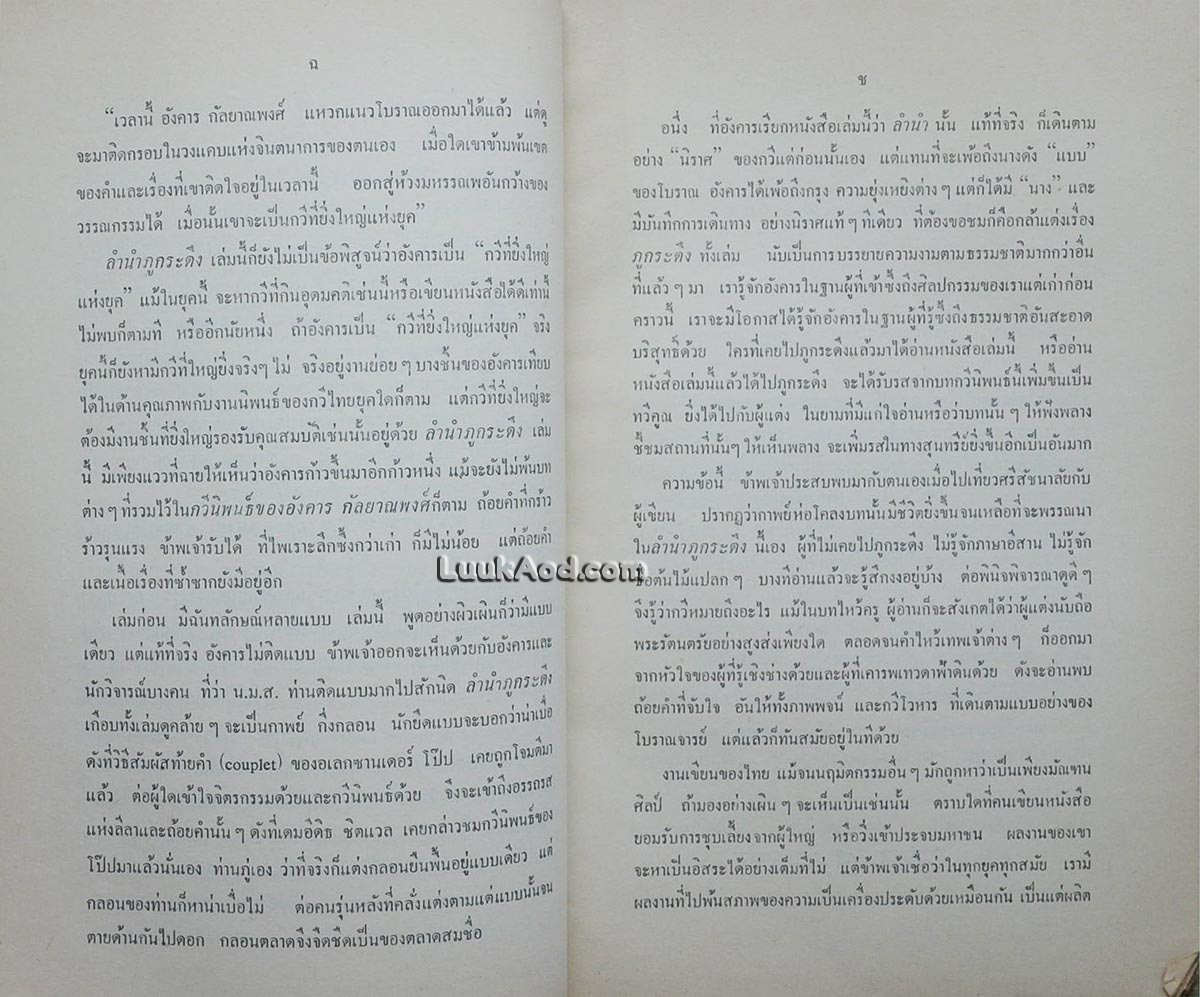 ฉ
“เวลานี้ อังคาร กัลยาณพงศ์ แหวกแนวโบราณออกมาได้แล้ว แต่ดู
จะมาติดกรอบในวงแคบแห่งจินตนาการของตนเอง เมื่อใดเขาข้ามพ้นเขต
ของคำและเรื่องที่เขาติดใจอยู่ในเวลานี้ ออกสู่ห้วงมหรรณพอันกว้างของ
วรรณกรรมได้ เมื่อนั้นเขาจะเป็นกวีที่ยิ่งใหญ่แห่งยุค”
ลำนำภูกระดึง เล่มนี้ก็ยังไม่เป็นข้อพิสูจน์ว่าอังคารเป็น “กวีที่ยิ่งใหญ่
แห่งยุค” แม้ในยุคนี้ จะหากวีที่กินอุดมคติเช่นนี้หรือเขียนหนังสือได้ดีเท่านี้
ไม่พบก็ตามที หรืออีกนัยหนึ่ง ถ้าอังคารเป็น “กวีที่ยิ่งใหญ่แห่งยุค” จริง
ยุคนี้ก็ยังหามีกวีที่ใหญ่ยิ่งจริงๆ ไม่ จริงอยู่งานย่อย ๆ บางชิ้นของอังคารเทียบ
ได้ในด้านคุณภาพกับงานนิพนธ์ของกวีไทยยุคใดก็ตาม แต่กวีที่ใหญ่จะ
ต้องมีงานชิ้นที่ยิ่งใหญ่รองรับคุณสมบัติเช่นนั้นอยู่ด้วย ลำนำภูกระดึง เล่ม
นี้ มีเพียงแววที่ฉายให้เห็นว่าอังคารก้าวขึ้นมาอีกก้าวหนึ่ง แม้จะยังไม่พ้นบท
ต่าง ๆ ที่รวมไว้ในกวีนิพนธ์ของอังคาร กัลยาณพงศ์ก็ตาม ถ้อยคำที่กร้าว
ร้าวรุนแรง ข้าพเจ้ารับได้ ที่ไพเราะลึกซึ้งกว่าเก่า ก็มีไม่น้อย แต่ถ้อยคำ
และเนื้อเรื่องที่ซ้ำซากยังมีอยู่อีก
เล่มก่อน มีฉันทลักษณ์หลายแบบ เล่มนี้ พูดอย่างผิวเผินก็ว่ามีแบบ
เดียว แต่แท้ที่จริง อังคารไม่ติดแบบ ข้าพเจ้าออกจะเห็นด้วยกับอังคารและ
นักวิจารณ์บางคน ที่ว่า น.ม.ส. ท่านติดแบบมากไปสักนิด ลำนำภูกระดึง
เกือบทั้งเล่มดูคล้าย ๆ จะเป็นกาพย์ กึ่งกลอน นักยึดแบบจะบอกว่าน่าเบื่อ
ดังที่วิธีสัมผัสท้ายคำ (couplet) ของอเลกซานเดอร์ โป๊ป เคยถูกโจมตีมา
แล้ว ต่อผู้ใดเข้าใจจิตรกรรมด้วยและกวีนิพนธ์ด้วย จึงจะเข้าถึงอรรถรส
แห่งลีลาและถ้อยคำนั้น ๆ ดังที่เดมอีดิธ ซิตแวล เคยกล่าวชมกวีนิพนธ์ของ
โป๊ปมาแล้วนั่นเอง ท่านภู่เอง ว่าที่จริงก็แต่งกลอนยืนพื้นอยู่แบบเดียว แต่
กลอนของท่านก็หาน่าเบื่อไม่ ต่อคนรุ่นหลังที่คลั่งแต่งตามแต่แบบนั้นจน
ตายด้านกันไปดอก กลอนตลาดจึงจืดชืดเป็นของตลาดสมชื่อ
ช
อนึ่ง ที่อังคารเรียกหนังสือเล่มนี้ว่า ลำนำ นั้น แท้ที่จริง ก็เดินตาม
อย่าง “นิราศ” ของกวีแต่ก่อนนั้นเอง แต่แทนที่จะเพ้อถึงนางดัง “แบบ”
ของโบราณ อังคารได้เพ้อถึงกรุง ความยุ่งเหยิงต่าง ๆ แต่ก็ได้มี “นาง” และ
มีบันทึกการเดินทาง อย่างนิราศแท้ ๆ ทีเดียว ที่ต้องขอชมก็คือกล้าแต่งเรื่อง
ภูกระดึง ทั้งเล่ม นับเป็นการบรรยายความงามตามธรรมชาติมากกว่าอื่น
ที่แล้ว ๆ มา เรารู้จักอังคารในฐานผู้ที่เข้าซึ้งถึงศิลปกรรมของเราแต่เก่าก่อน
คราวนี้ เราจะมีโอกาสได้รู้จักอังคารในฐานผู้ที่รู้ซึ้งถึงธรรมชาติอันสะอาด
บริสุทธิ์ด้วย ใครที่เคยไปภูกระดึงแล้วมาได้อ่านหนังสือเล่มนี้ หรืออ่าน
หนังสือเล่มนี้แล้วได้ไปภูกระดึง จะได้รับรสจากบทกวีนิพนธ์นี้เพิ่มขึ้นเป็น
ทวีคูณ ยิ่งได้ไปกับผู้แต่ง ในยามที่มีแก่ใจอ่านหรือว่าบทนั้น ๆ ให้ฟังพลาง
ชี้ชมสถานที่นั้นๆ ให้เห็นพลาง จะเพิ่มรสในทางสุนทรีย์ยิ่งขึ้นอีกเป็นอันมาก
ความข้อนี้ ข้าพเจ้าประสบพบมากับตนเองเมื่อไปเที่ยวศรีสัชนาลัยกับ
ผู้เขียน ปรากฏว่ากาพย์ห่อโคลงบทนั้นมีชีวิตยิ่งขึ้นจนเหลือที่จะพรรณนา
ในลำนำภูกระดึง นี้เอง ผู้ที่ไม่เคยไปภูกระดึง ไม่รู้จักภาษาอีสาน ไม่รู้จัก
ชื่อต้นไม้แปลก ๆ บางทีอ่านแล้วจะรู้สึกงงอยู่บ้าง ต่อพินิจพิจารณาดูดี ๆ
จึงรู้ว่ากวีหมายถึงอะไร แม้ในบทไหว้ครู ผู้อ่านก็จะสังเกตได้ว่าผู้แต่งนับถือ
พระรัตนตรัยอย่างสูงส่งเพียงใด ตลอดจนคำไหว้เทพเจ้าต่าง ๆ ก็ออกมา
จากหัวใจของผู้ที่รู้เชิงช่างด้วยและผู้ที่เคารพเทวดาฟ้าดินด้วย ดังจะอ่านพบ
ถ้อยคำที่จับใจ อันให้ทั้งภาพพจน์ และกวีโวหาร ที่เดินตามแบบอย่างของ
โบราณจารย์ แต่แล้วก็ทันสมัยอยู่ในทีด้วย
งานเขียนของไทย แม้จนนฤมิตกรรมอื่น ๆ มักถูกหาว่าเป็นเพียงมัณฑน
ศิลป์ ถ้ามองอย่างเผิน ๆ จะเห็นเป็นเช่นนั้น ตราบใดที่คนเขียนหนังสือ
ยอมรับการชุบเลี้ยงจากผู้ใหญ่ หรือวิ่งเข้าประจบมหาชน ผลงานของเขา
จะหาเป็นอิสระได้อย่างเต็มที่ไม่ แต่ข้าพเจ้าเชื่อว่าในทุกยุคทุกสมัย เรามี
ผลงานที่ไปพ้นสภาพของความเป็นเครื่องประดับด้วยเหมือนกัน เป็นแต่ผลิต
LuukAod.com